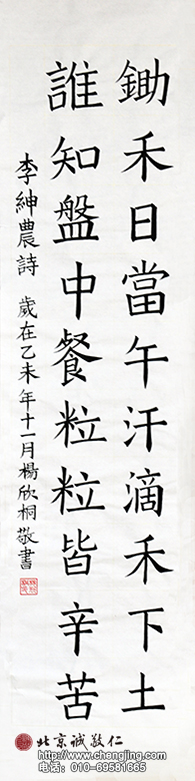 鋤禾日當午汗滴禾下土
誰知盤中餐粒粒皆辛苦
李紳農詩 歲在乙未年十一月楊欣桐敬書
北京诚敬仁
www.chengjing.com
电话：010-69581665